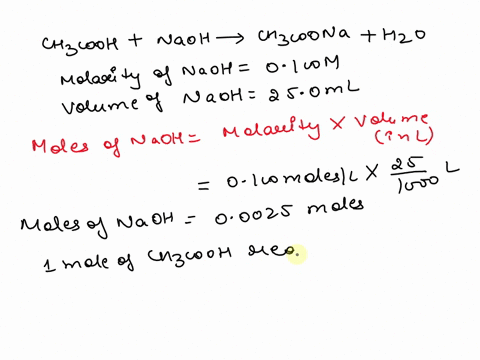 CH3COOH + NaOH → CH3COONa + H2O
Molarity of NaOH = 0.100M
Volume of NaOH = 25.0mL
Moles of NaOH = Molarity × Volume
(in L)
= 0.100 moles/L × 25/1000 L
Moles of NaOH = 0.0025 moles
1 mole of CH3COOH reo